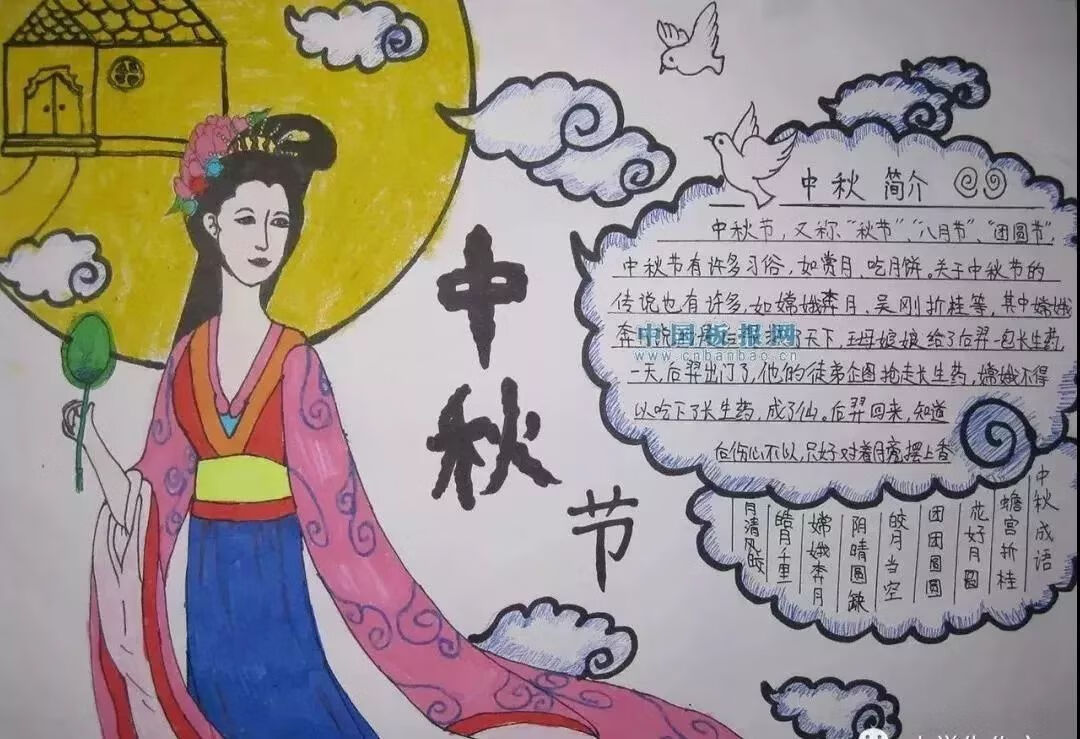 中
秋
节
中秋简介
中秋节，又称“秋节”、“八月节”、“团圆节”，
中秋节有许多习俗，如赏月、吃月饼。关于中秋节的
传说也有许多，如嫦娥奔月、吴刚折桂等，其中嫦娥
奔 了天下，王母娘娘给了后羿一包长生药
一天，后羿出门了，他的徒弟企图抢走长生药，嫦娥不得
以吃下了长生药，成了仙。后羿回来，知道
后伤心不以，只好对着月亮摆上香
中国板报网
www.cnbanbao.cn
中秋成语
蟾宫折桂
花好月圆
团团圆圆
皎月当空
阴晴圆缺
嫦娥奔月
皓月千
月清风皎